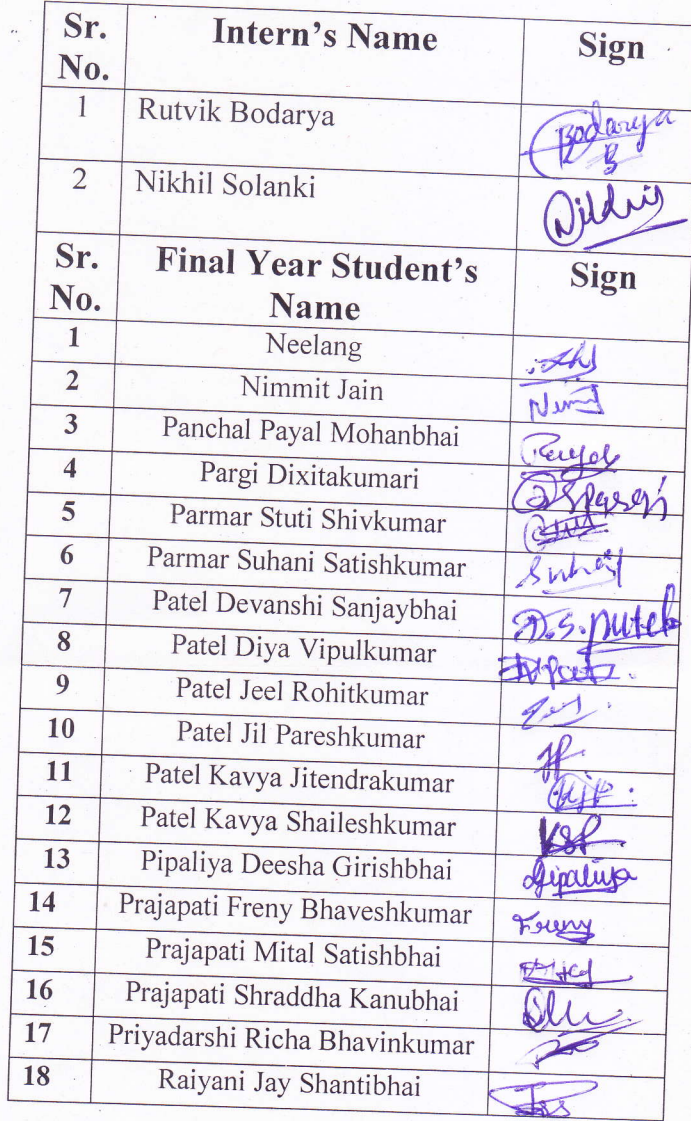 Sr. No. Intern's Name Sign
1 Rutvik Bodarya Bodarya
2 Nikhil Solanki
Sr. No. Final Year Student's Name Sign
1 Neelang
2 Nimmit Jain
3 Panchal Payal Mohanbhai Payal
4 Pargi Dixitakumari
5 Parmar Stuti Shivkumar
6 Parmar Suhani Satishkumar
7 Patel Devanshi Sanjaybhai D.S.patel
8 Patel Diya Vipulkumar
9 Patel Jeel Rohitkumar
10 Patel Jil Pareshkumar
11 Patel Kavya Jitendrakumar
12 Patel Kavya Shaileshkumar KSP
13 Pipaliya Deesha Girishbhai
14 Prajapati Freny Bhaveshkumar Freny
15 Prajapati Mital Satishbhai
16 Prajapati Shraddha Kanubhai
17 Priyadarshi Richa Bhavinkumar
18 Raiyani Jay Shantibhai